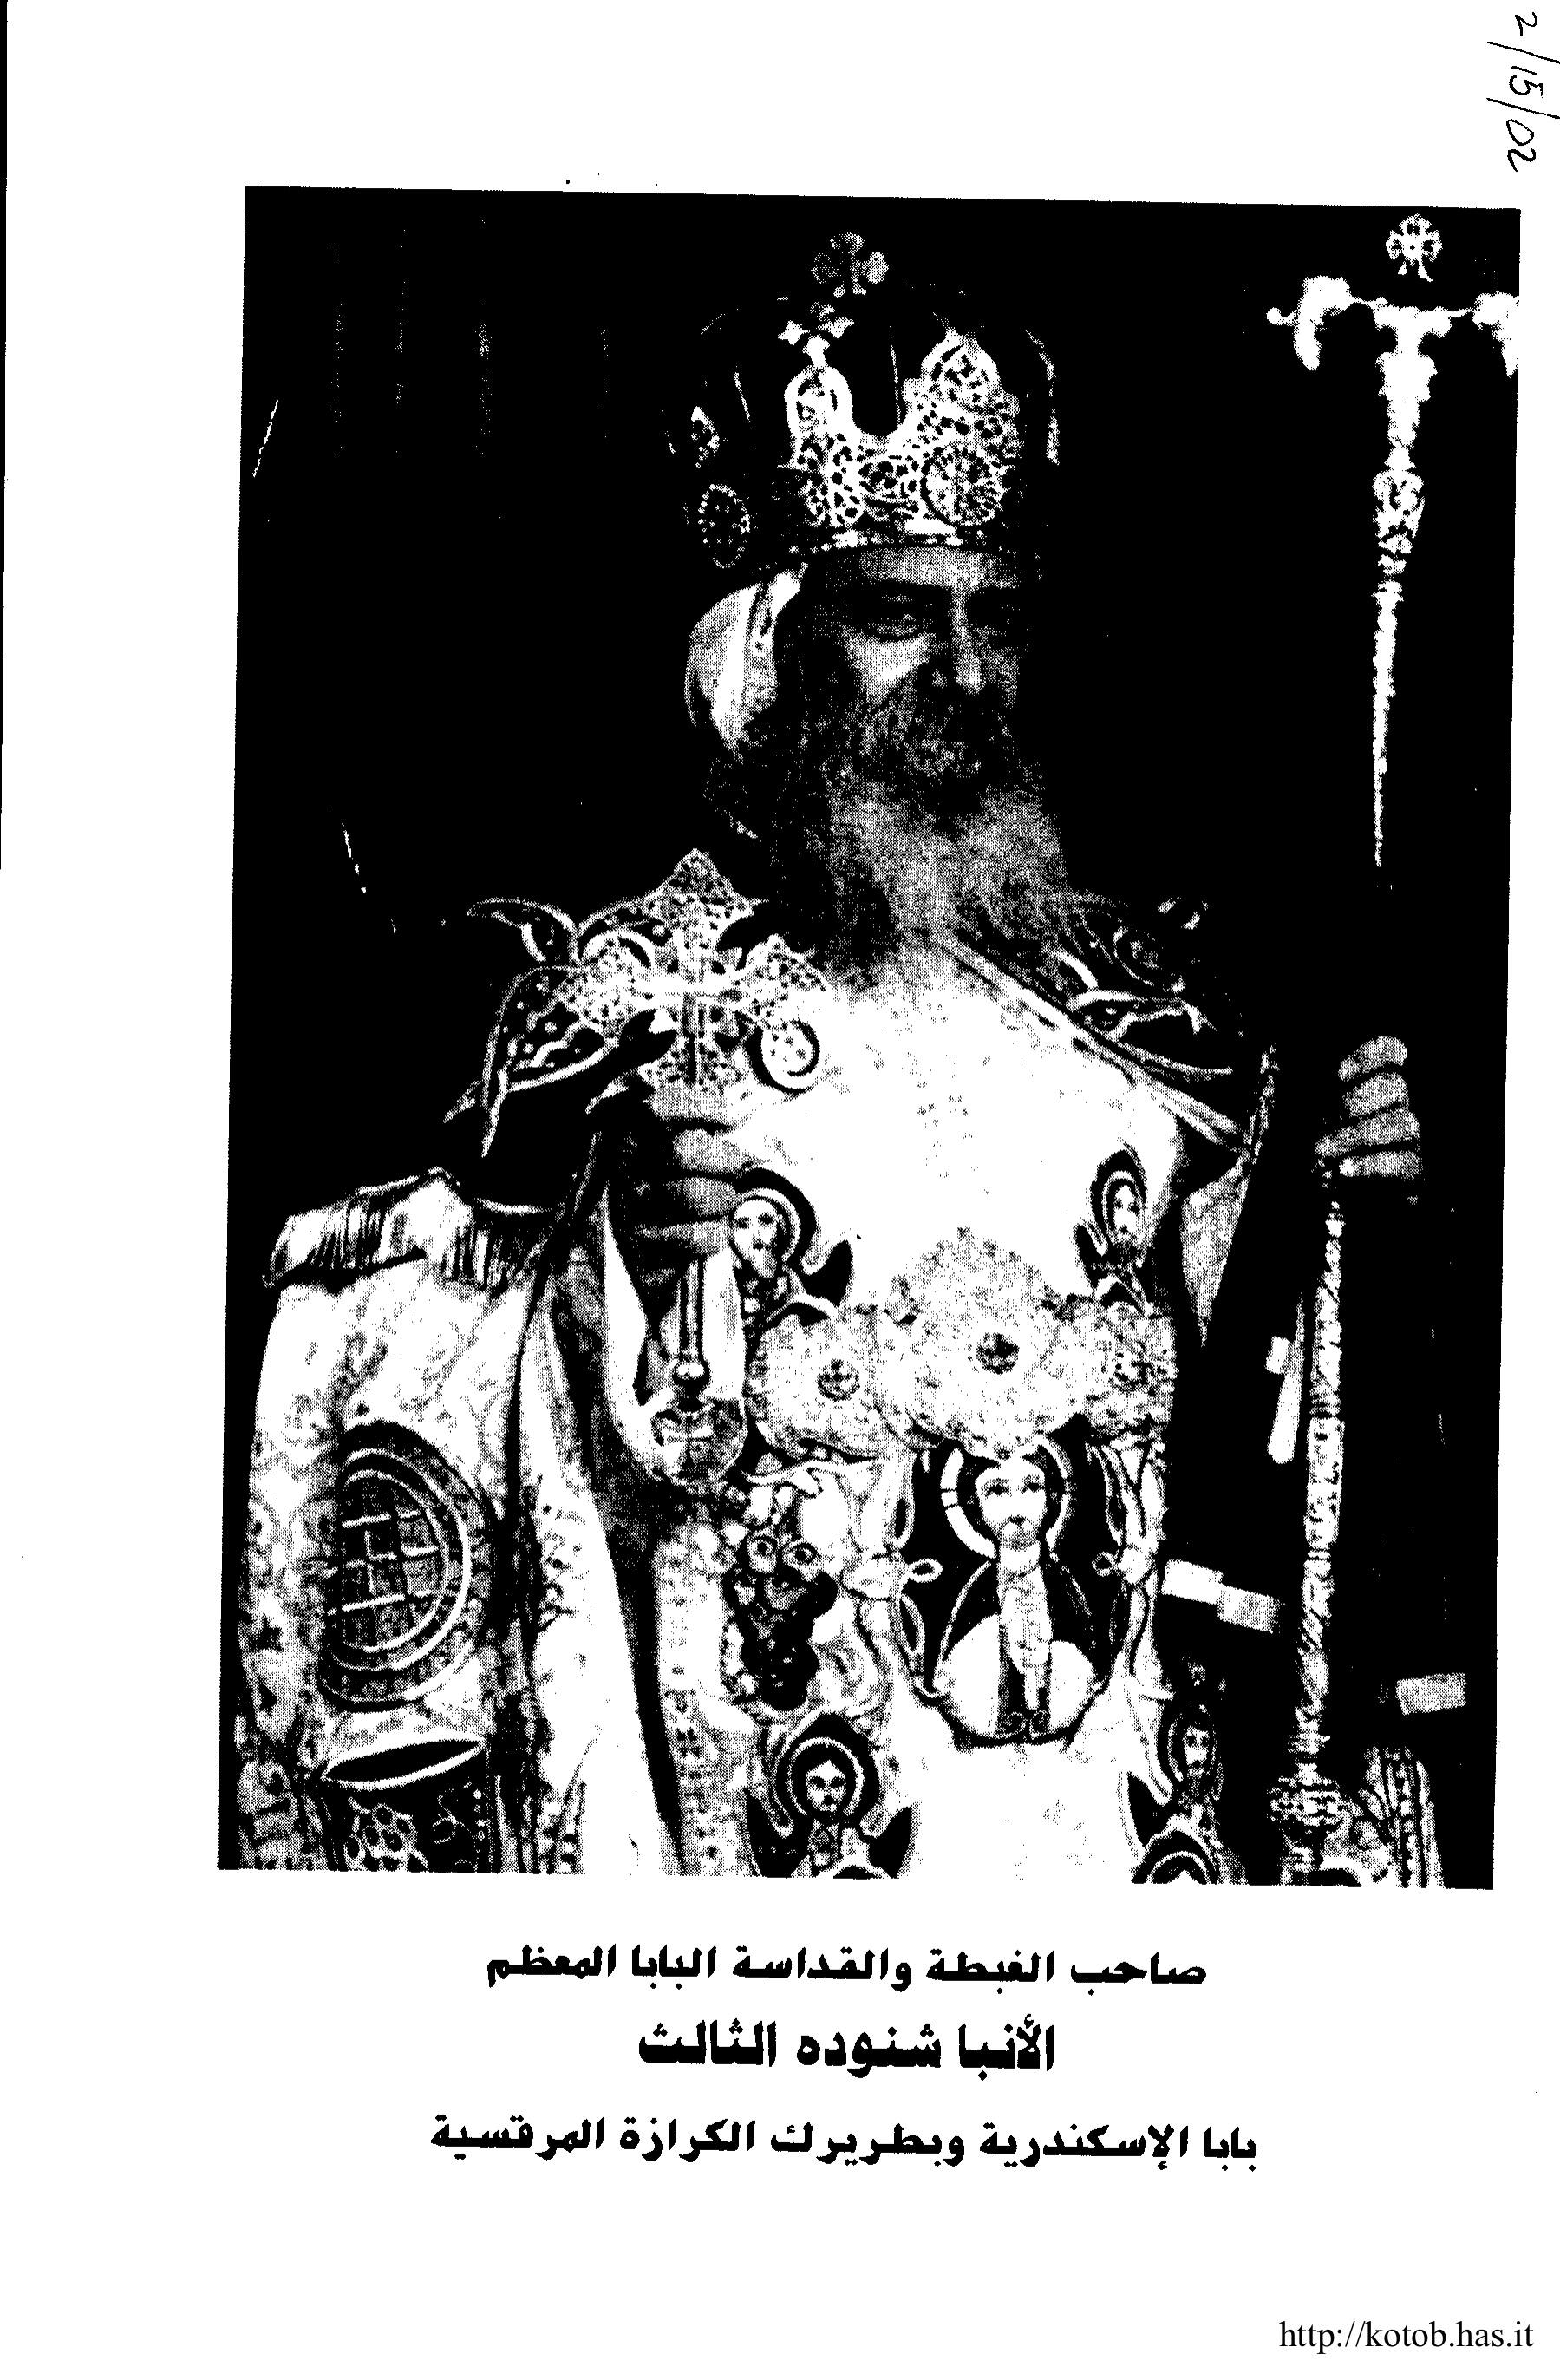 2/15/02
صاحب الغبطة والقداسة البابا المعظم
الأنبا شنوده الثالث
بابا الإسكندرية وبطريرك الكرازة المرقسية
http://kotob.has.it